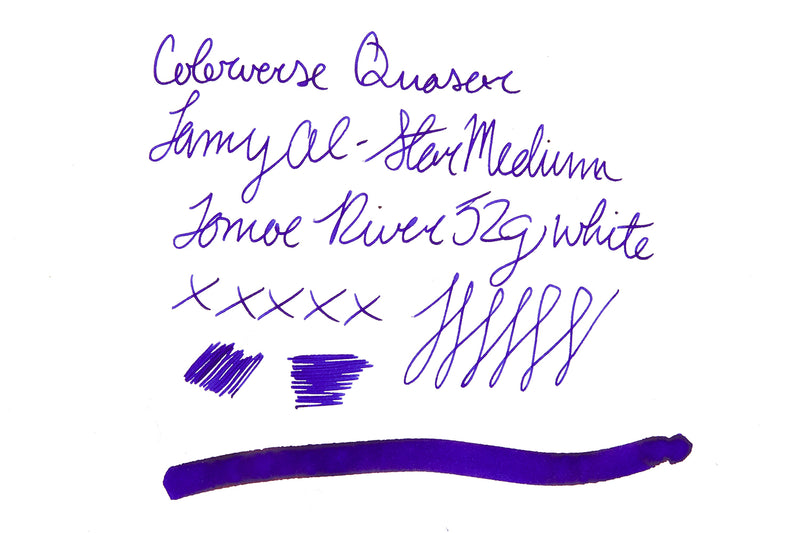 Colorverse Quasar
Lamy Al-Star Medium
Tomoe River 52g white
X X X X X